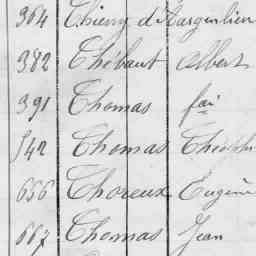 364 Thierry d'Hargenlieu
382 Thébaut Albert
391 Thomas
542 Thomas
656 Thoreux Eugène
667 Thomas Jean